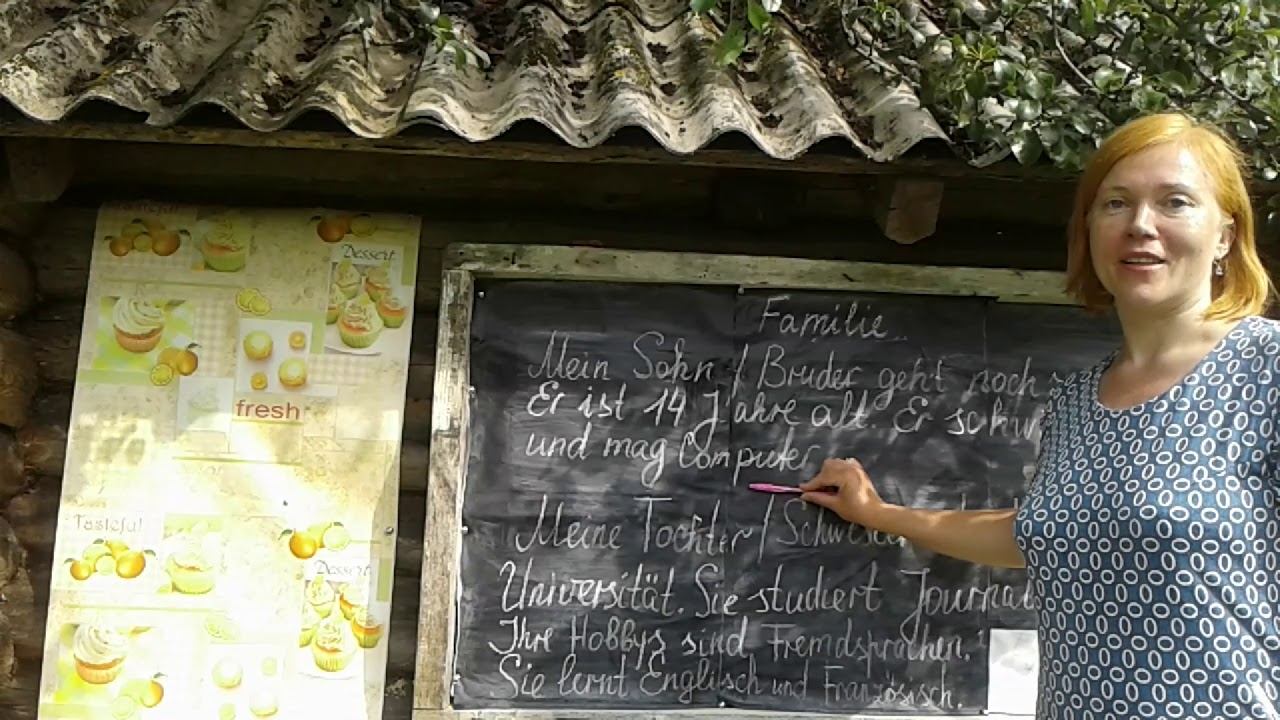 Dessert
fresh
Tasteful
Dessert
Familie
Mein Sohn / Bruder geht noch
Er ist 14 Jahre alt. Er schw
und mag Computer
Meine Tochter / Schwester
Universität. Sie studiert Journal
Ihre Hobbys sind Fremdsprachen.
Sie lernt Englisch und Französisch.